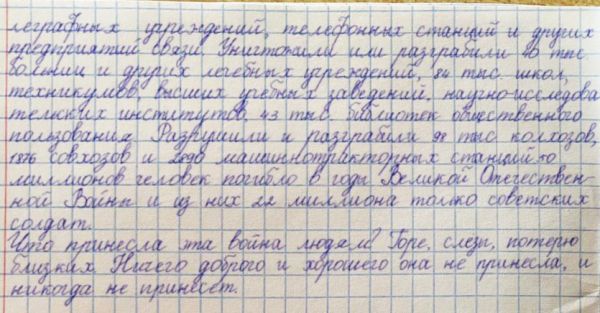 леграфных учреждений, телефонных станций и других
предприятий связи. Уничтожили или разграбили 40 тыс.
больниц и других лечебных учреждений, 84 тыс. школ,
техникумов, высших учебных заведений, научно-исследова
тельских институтов, 43 тыс. библиотек общественного
пользования. Разрушили и разграбили 98 тыс колхозов,
1876 совхозов и 2890 машиннотракторных станций.
миллионов человек погибло в годы Великой Отечествен-
ной Войны и из них 22 миллиона только советских
солдат.
Что принесла эта война людям? Горе, слезы, потерю
близких. Ничего доброго и хорошего она не принесла, и
никогда не принесет.